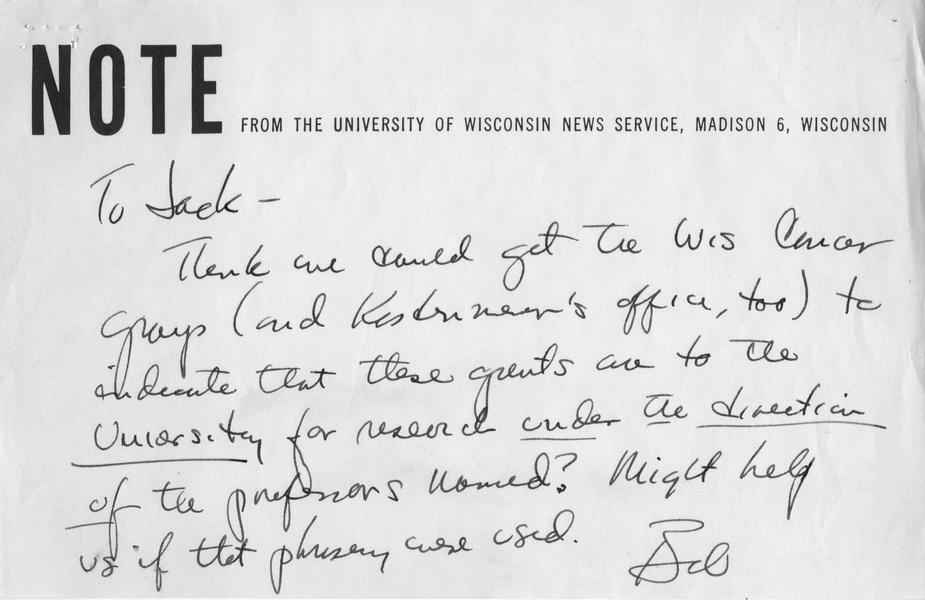 NOTE FROM THE UNIVERSITY OF WISCONSIN NEWS SERVICE, MADISON 6, WISCONSIN
To Jack -
Think we could get the Wis Cancer
groups (and 's office, too) to
indicate that these grants are to the
University for research under the direction
of the professors named? Might help
us if that phrasing were used.
Bob